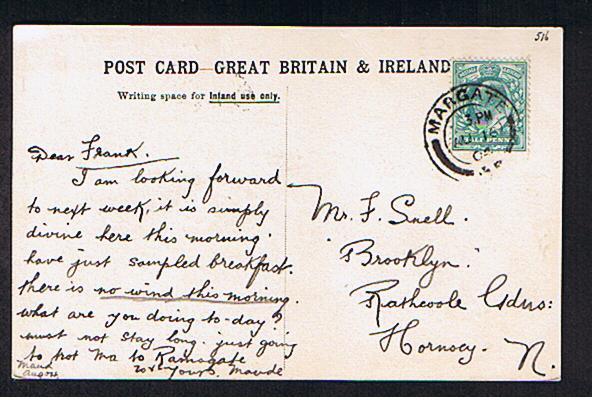 516
POST CARD—GREAT BRITAIN & IRELAND
Writing space for Inland use only.
MARGATE
3 PM
16
HALFPENNY
Dear Frank.
I am looking forward
to next week, it is simply
divine here this morning.
have just sampled breakfast.
there is no wind this morning.
what are you doing to-day?
must not stay long. just going
to trot Ma to Ramsgate
Yours. Maude
Mr. F. Snell.
"Brooklyn."
Rathcoole Gdns:
Hornsey. N.